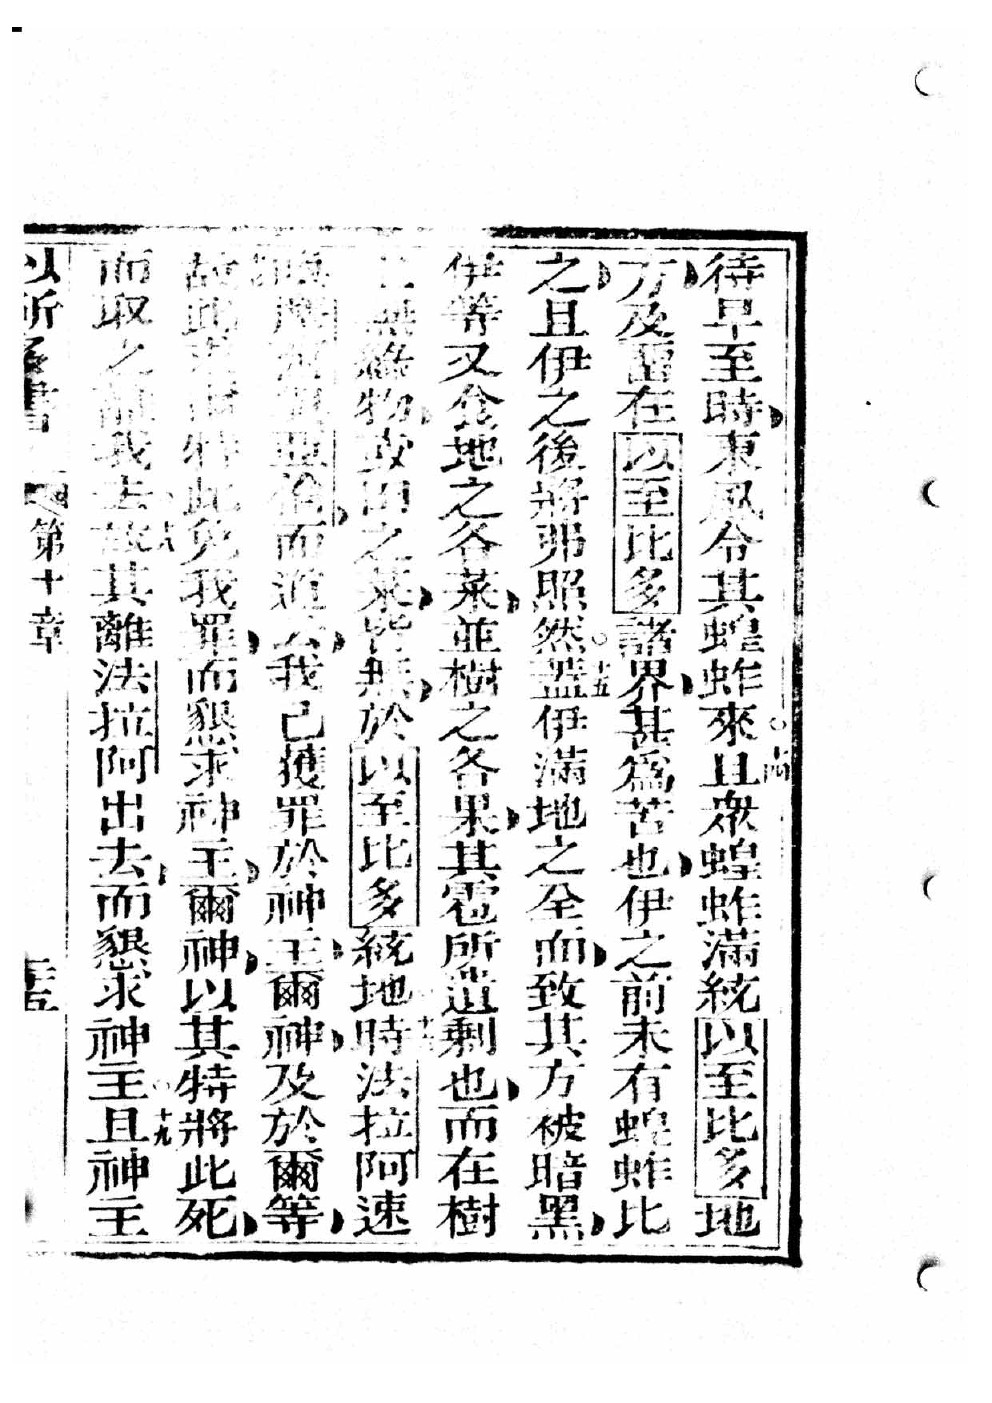 待早至時東風令其蝗蚱來且眾蝗蚱滿統以至比多地
十四
方及畱在以至比多諸界甚為苦也伊之前未有蝗蚱比
之且伊之後將弗照然蓋伊滿地之全面致其方被暗黑
十五
伊等又食地之各菜並樹之各果其雹所遺剩也而在樹
無綠物或田之菜皆無於以至比多統地時法拉阿速
十六
而道云我已獲罪於神主爾神及於爾等
故此求爾特此免我罪而懇求神主爾神以其特將此死
而取之離我去故其離法拉阿出去而懇求神主且神主
十八
十九
以所多書
第十章